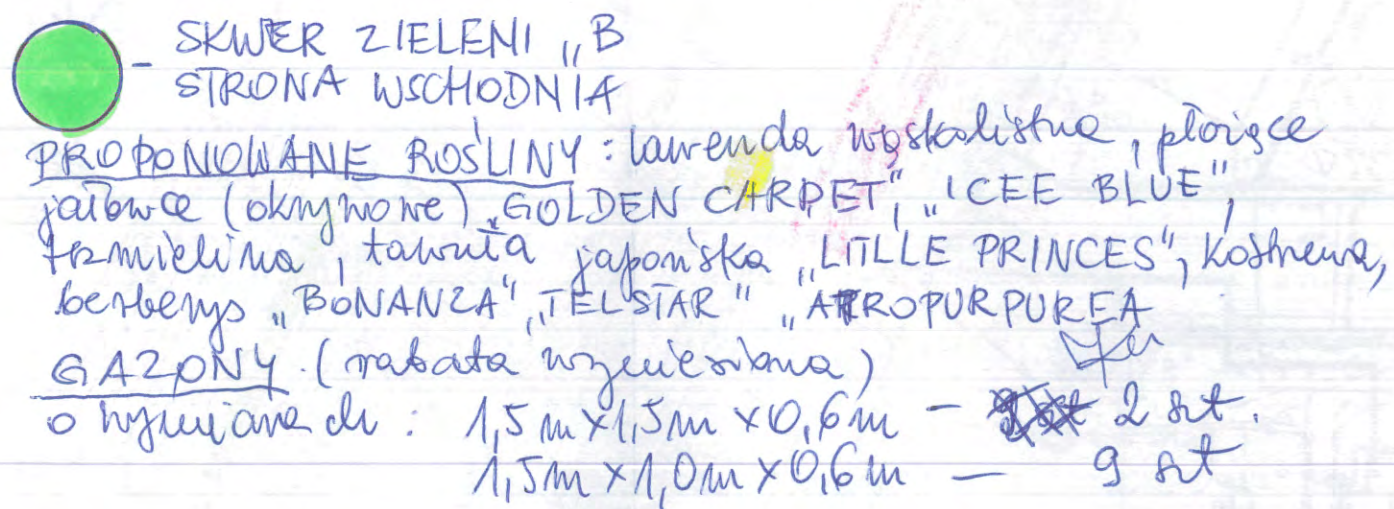 - SKWER ZIELENI „B
STRONA WSCHODNIA
PROPONOWANE ROŚLINY : lawenda wąskolistna, płożące
jałowce (okrywowe) „GOLDEN CARPET", „ICEE BLUE",
trzmielina, tawuła japońska „LITLLE PRINCES", kostrzewa,
berberys „BONANZA", „TELSTAR" „ATROPURPUREA
GAZONY (rabata wzniesiona)
o wymiarach : 1,5 m x 1,5 m x 0,6 m - 2 szt.
1,5 m x 1,0 m x 0,6 m — 9 szt